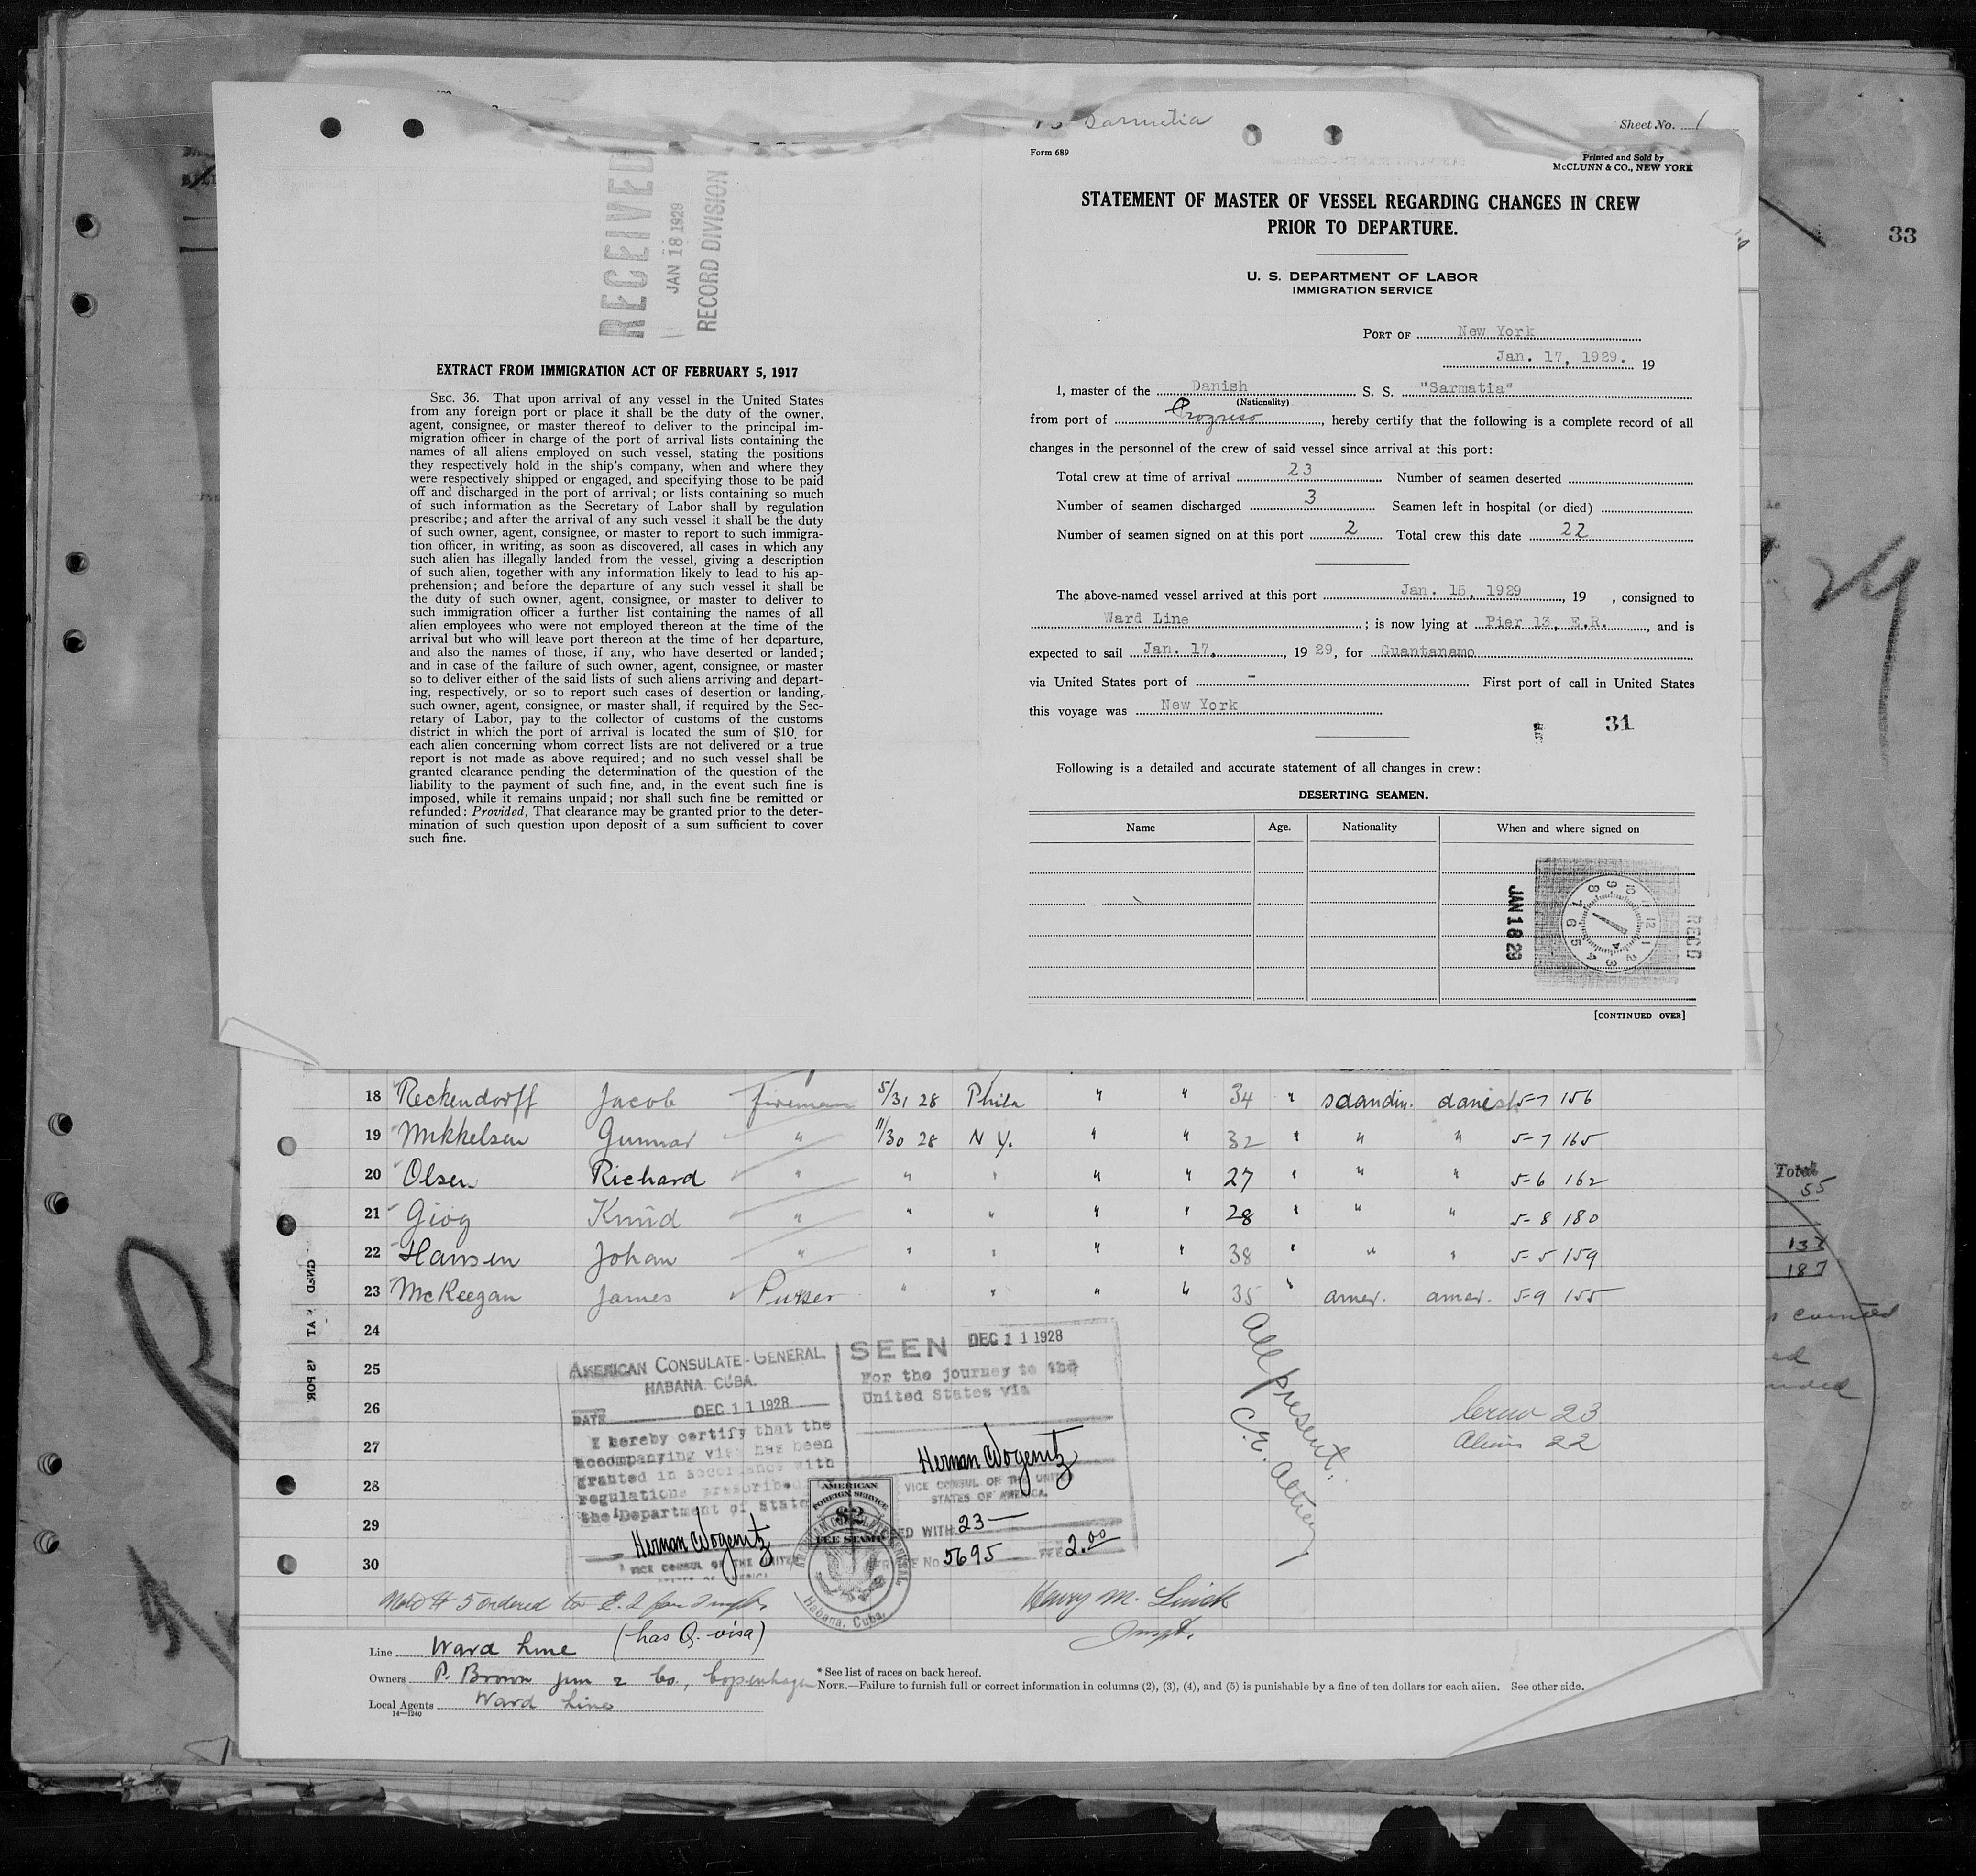 RECEIVED
JAN 18 1929
RECORD DIVISION
EXTRACT FROM IMMIGRATION ACT OF FEBRUARY 5, 1917
SEC. 36. That upon arrival of any vessel in the United States
from any foreign port or place it shall be the duty of the owner,
agent, consignee, or master thereof to deliver to the principal im-
migration officer in charge of the port of arrival lists containing the
names of all aliens employed on such vessel, stating the positions
they respectively hold in the ship's company, when and where they
were respectively shipped or engaged, and specifying those to be paid
off and discharged in the port of arrival; or lists containing so much
of such information as the Secretary of Labor shall by regulation
prescribe; and after the arrival of any such vessel it shall be the duty
of such owner, agent, consignee, or master to report to such immigra-
tion officer, in writing, as soon as discovered, all cases in which any
such alien has illegally landed from the vessel, giving a description
of such alien, together with any information likely to lead to his ap-
prehension; and before the departure of any such vessel it shall be
the duty of such owner, agent, consignee, or master to deliver to
such immigration officer a further list containing the names of all
alien employees who were not employed thereon at the time of the
arrival but who will leave port thereon at the time of her departure,
and also the names of those, if any, who have deserted or landed;
and in case of the failure of such owner, agent, consignee, or master
so to deliver either of the said lists of such aliens arriving and depart-
ing, respectively, or so to report such cases of desertion or landing,
such owner, agent, consignee, or master shall, if required by the Sec-
retary of Labor, pay to the collector of customs of the customs
district in which the port of arrival is located the sum of $10 for
each alien concerning whom correct lists are not delivered or a true
report is not made as above required; and no such vessel shall be
granted clearance pending the determination of the question of the
liability to the payment of such fine, and, in the event such fine is
imposed, while it remains unpaid; nor shall such fine be remitted or
refunded: Provided, That clearance may be granted prior to the deter-
mination of such question upon deposit of a sum sufficient to cover
such fine.
Sarmatia
Sheet No. 1
Form 689
Printed and Sold by
McCLUNN & CO., NEW YORK
STATEMENT OF MASTER OF VESSEL REGARDING CHANGES IN CREW
PRIOR TO DEPARTURE.
U. S. DEPARTMENT OF LABOR
IMMIGRATION SERVICE
PORT OF New York
Jan. 17, 1929. 19
I, master of the Danish S. S. "Sarmatia"
(Nationality)
from port of Progreso, hereby certify that the following is a complete record of all
changes in the personnel of the crew of said vessel since arrival at this port:
Total crew at time of arrival 23 Number of seamen deserted
Number of seamen discharged 3 Seamen left in hospital (or died)
Number of seamen signed on at this port 2 Total crew this date 22
The above-named vessel arrived at this port Jan. 15, 1929, 19 , consigned to
Ward Line ; is now lying at Pier 13, E.R., and is
expected to sail Jan. 17, , 19 29, for Guantanamo
via United States port of - First port of call in United States
this voyage was New York
31
Following is a detailed and accurate statement of all changes in crew:
DESERTING SEAMEN.
Name Age. Nationality When and where signed on
JAN 18 29
RECD
[CONTINUED OVER]
33
18 Reckendorff Jacob fireman 5/31 28 Phila " " 34 " scandin. danish 5-7 156
19 Mikkelsen Gunnar " 11/30 28 N Y. " " 32 " " " 5-7 165
20 Olsen Richard " " " " " 27 " " " 5-6 162
21 Giog Knud " " " " " 28 " " " 5-8 180
22 Hansen Johan " " " " " 38 " " " 5-5 159
23 McKeegan James Purser " " " " 35 " amer. amer. 5-9 155
24
25
26
27
28
29
30
AMERICAN CONSULATE-GENERAL
HABANA. CUBA.
DATE DEC 11 1928
I hereby certify that the
accompanying visa has been
granted in accordance with
regulations prescribed
the Department of State
Herman Wogenitz
VICE CONSUL OF THE UNITED
SEEN DEC 11 1928
For the journey to the
United States via
Herman Wogenitz
VICE CONSUL OF THE UNITED
STATES OF AMERICA.
WITH 23
No 5695 FEE 2.00
AMERICAN
FOREIGN SERVICE
$2
FEE STAMP
Habana, Cuba.
All present.
Crew 23
Aliens 22
Harry M. Linick
Inspt.
(has Q. visa)
Line Ward Line
Owners P. Brown jun & Co., Copenhagen
Local Agents Ward Line
14—1240
* See list of races on back hereof.
NOTE.—Failure to furnish full or correct information in columns (2), (3), (4), and (5) is punishable by a fine of ten dollars for each alien. See other side.
Total
55
133
187